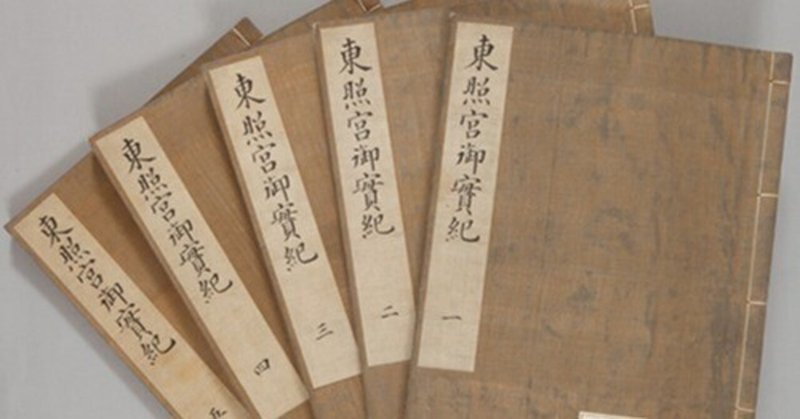 東照宮御實紀 一
東照宮御實紀 二
東照宮御實紀 三
東照宮御實紀 四
東照宮御實紀 五